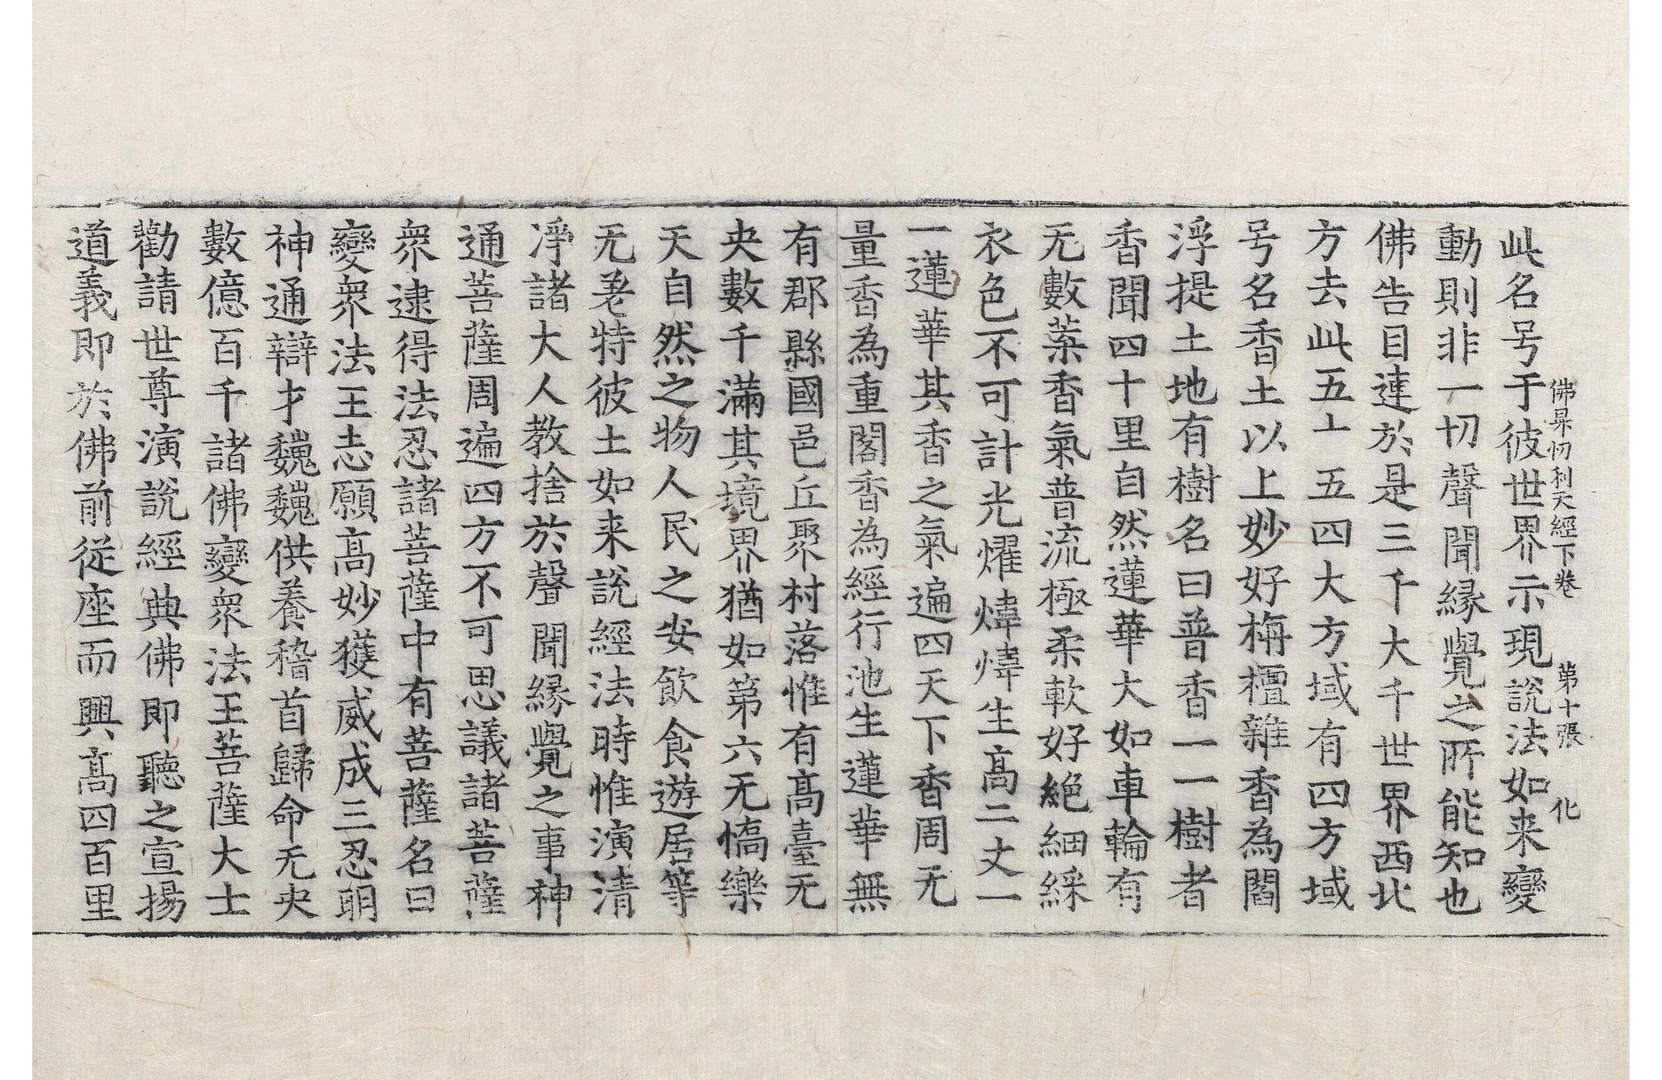 佛昇忉利天經下卷 第十張 化
此名号于彼世界示現說法如来變
動則非一切聲聞緣覺之所能知也
佛告目連於是三千大千世界西北
方去此五十五四大方域有四方域
号名香土以上妙好栴檀雜香為閻
浮提土地有樹名曰普香一一樹者
香聞四十里自然蓮華大如車輪有
无數葉香氣普流極柔軟好絶細綵
衣色不可計光燿煒煒生高二丈一
一蓮華其香之氣遍四天下香周无
量香為重閣香為經行池生蓮華無
有郡縣國邑丘聚村落惟有高臺无
央數千滿其境界猶如第六无憍樂
天自然之物人民之安飲食遊居等
无差特彼土如来說經法時惟演清
淨諸大人教捨於聲聞緣覺之事神
通菩薩周遍四方不可思議諸菩薩
衆逮得法忍諸菩薩中有菩薩名曰
變衆法王志願高妙獲威成三忍明
神通辯才巍巍供養稽首歸命无央
數億百千諸佛變衆法王菩薩大士
勸請世尊演說經典佛即聽之宣揚
道義即於佛前従座而興高四百里